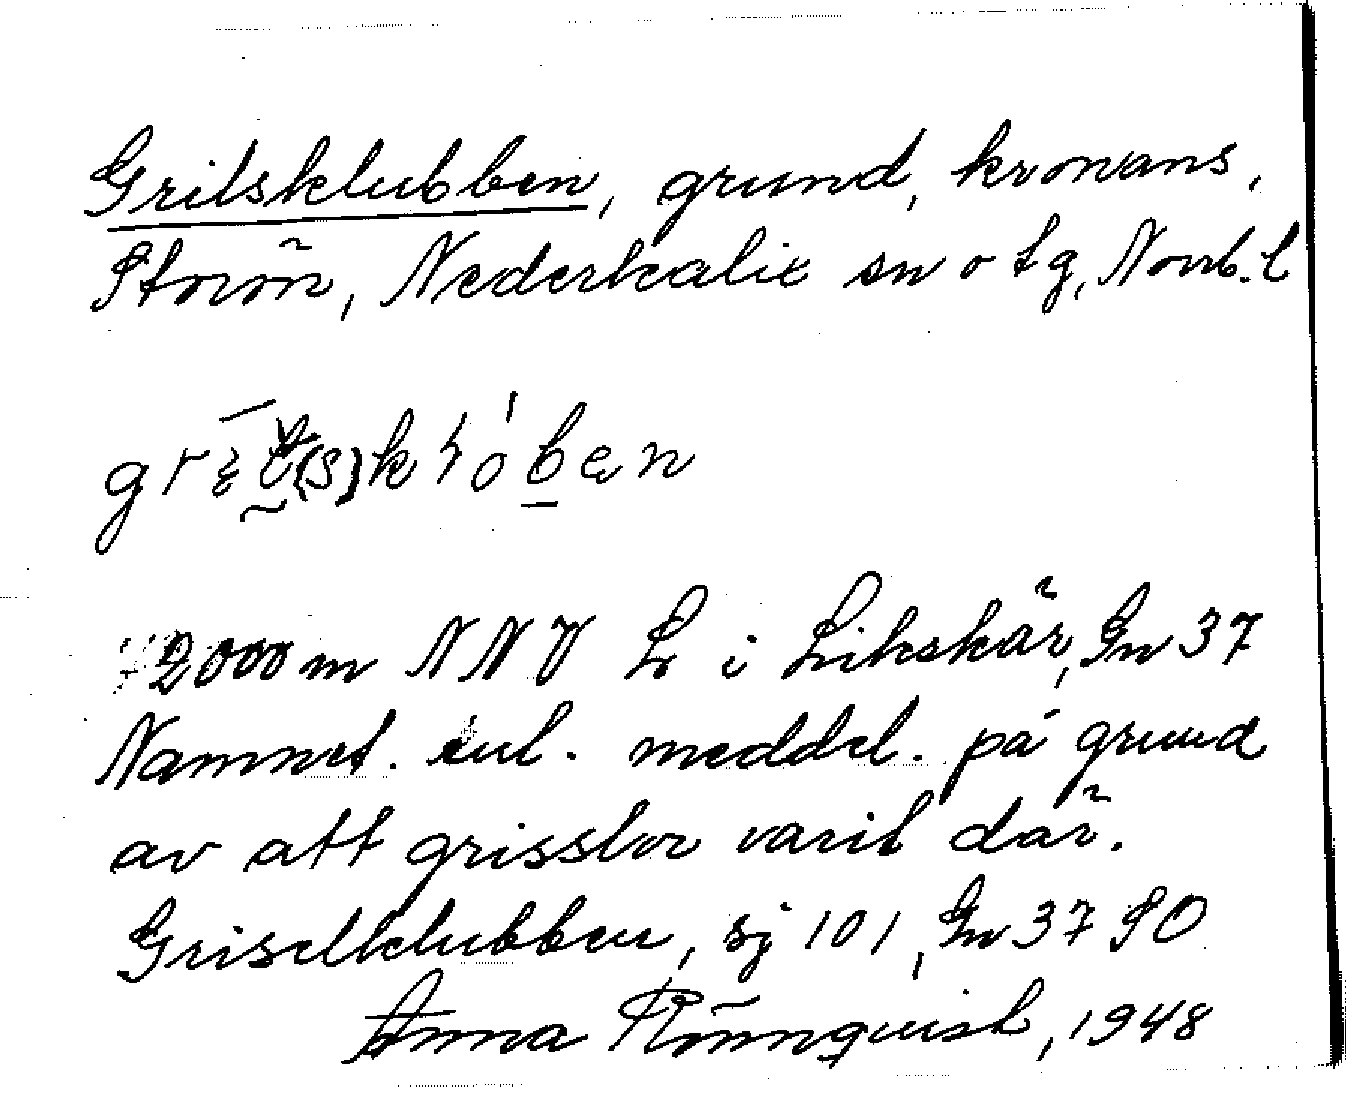 Grilsklubben, grund, kronans,
Storön, Nederkalix sn o tg, Norrb. l
2000 m NNV L i Likskär, Gn 37
Namnet. enl. meddel. på grund
av att grisslor varit där.
Griselklubben, sj 101, Gn 37 SO
Anna Rönnqvist, 1948